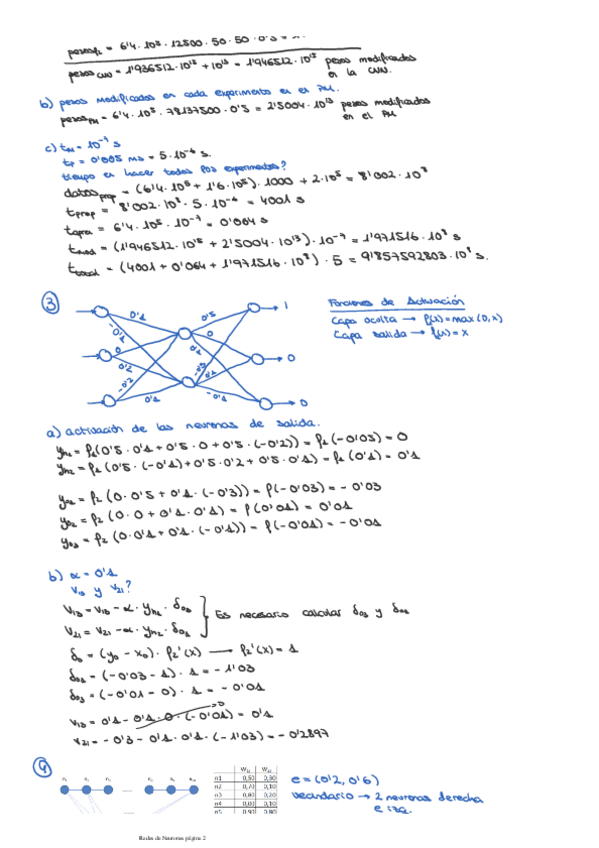 pesos_FC = 6'4 · 10⁵ · 12500 · 50 · 50 · 0'5 =
pesos_CNN = 1'936512·10¹⁵ + 10¹³ = 1'946512 · 10¹⁵ pesos modificados en la CNN.
b) pesos modificados en cada experimento en el PM.
pesos_PM = 6'4 · 10⁵ · 78137500 · 0'5 = 2'5004 · 10¹³ pesos modificados en el PM
c) t_M = 10⁻⁷ s
t_P = 0'005 ms = 5·10⁻⁶ s.
tiempo en hacer todos los experimentos?
datos_prop = (6'4·10⁵ + 1'6·10⁵) · 1000 + 2·10⁵ = 8'002·10⁸
t_prop = 8'002·10⁸ · 5·10⁻⁶ = 4001 s
t_apra = 6'4·10⁵ · 10⁻⁷ = 0'064 s
t_mod = (1'946512·10¹⁵ + 2'5004·10¹³) · 10⁻⁷ = 1'971516·10⁸ s
t_total = (4001 + 0'064 + 1'971516·10⁸) · 5 = 9'857592803·10⁸ s.
3
0'1 0'5 1
-0'1 0
0 0'1 0
0'2 -0'3
-0'2 0'1
0'1 -0'1 0
Funciones de Activación
Capa oculta → f(x) = max(0,x)
Capa salida → f(x) = x
a) activación de las neuronas de salida.
y_H1 = f₁(0'5 · 0'1 + 0'5 · 0 + 0'5 · (-0'2)) = f₁(-0'05) = 0
y_H2 = f₁(0'5 · (-0'1) + 0'5 · 0'2 + 0'5 · 0'1) = f₁(0'1) = 0'1
y_O1 = f₂(0 · 0'5 + 0'1 · (-0'3)) = f(-0'03) = -0'03
y_O2 = f₂(0 · 0 + 0'1 · 0'1) = f(0'01) = 0'01
y_O3 = f₂(0 · 0'1 + 0'1 · (-0'1)) = f(-0'01) = -0'01
b) α = 0'1
v₁₃ y v₂₁?
v₁₃ = v₁₃ - α · y_H1 · δ_O3
v₂₁ = v₂₁ - α · y_H2 · δ_O1
Es necesario calcular δ_O3 y δ_O1
δ_O = (y_O - x_O) · f₂'(x) → f₂'(x) = 1
δ_O1 = (-0'03 - 1) · 1 = -1'03
δ_O3 = (-0'01 - 0) · 1 = -0'01
v₁₃ = 0'1 - 0'1 · 0 · (-0'01) = 0'1
v₂₁ = -0'3 - 0'1 · 0'1 · (-1'03) = -0'2897
4
n1 0,50 0,30
n2 0,70 0,10
n3 0,80 0,20
n4 0,00 0,10
n5 0,90 0,80
e = (0'2, 0'6)
vecindario → 2 neuronas derecha e izq.
Redes de Neuronas página 2